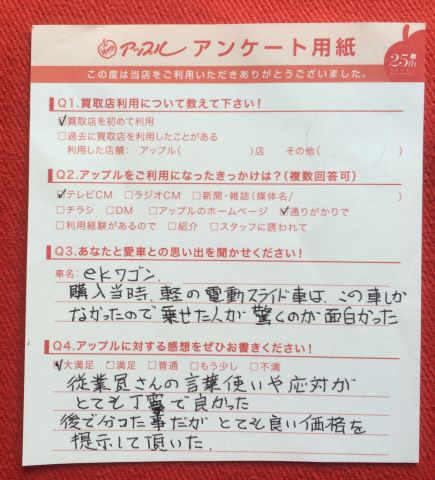 アップル アンケート用紙
25th
この度は当店をご利用いただきありがとうございました。
Q1.買取店利用について教えて下さい!
☑買取店を初めて利用
□過去に買取店を利用したことがある
利用した店舗: アップル( )店 その他( )
Q2.アップルをご利用になったきっかけは?(複数回答可)
☑テレビCM □ラジオCM □新聞・雑誌(媒体名/ )
□チラシ □DM □アップルのホームページ ☑通りがかりで
□利用経験があるので □紹介 □スタッフに誘われて
Q3.あなたと愛車との思い出を聞かせください!
車名: ekワゴン.
購入当時、軽の電動スライド車は、この車しか
なかったので乗せた人が驚くのが面白かった
Q4.アップルに対する感想をぜひお書きください!
☑大満足 □満足 □普通 □もう少し □不満
従業員さんの言葉使いや応対が
とても丁寧で良かった
後で分った事だがとても良い価格を
提示して頂いた.